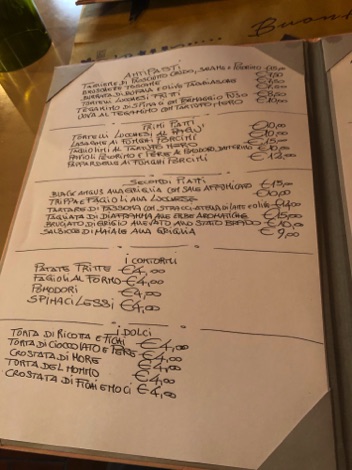 Buon
ANTIPASTI
TAGLIERE DI PROSCIUTTO CRUDO, SALAME E PECORINO
BRUSCHETTE TOSCANE
BURRATA DI BUFALA E OLIVE TAGGIASCHE
TORTELLI LUCCHESI FRITTI
TEGAMINO DI SPINACI CON FORMAGGIO FUSO €8,50
UOVA AL TEGAMINO CON TARTUFO NERO €10,00
PRIMI PIATTI
TORTELLI LUCCHESI AL RAGÙ €10,00
LASAGNE AI FUNGHI PORCINI €10,00
TAGLIOLINI AL TARTUFO NERO €15,00
RAVIOLI PECORINO E PERE AL €10,00
PAPPARDELLE AI FUNGHI PORCINI €12,00
SECONDI PIATTI
BLACK ANGUS ALLA GRIGLIA CON SALE AFFUMICATO €15,00
TRIPPA E FAGIOLI ALLA LUCCHESE €10,00
TARTARE DI PASSONA CON STRACCIATELLA DI LATE E OLIVE €14,00
TAGLIATA DI DIAFRAMMA ALLE ERBE AROMATICHE €15,00
BRUCIATO DI GRIGIO ALLEVATO ALLO STATO BRADO €10,00
SALSICCIE DI MAIALE ALLA GRIGLIA €9,00
I CONTORNI
PATATE FRITTE €4,00
FAGIOLI AL FORNO €4,00
POMODORI €4,00
SPINACI LESSI €4,00
I DOLCI
TORTA DI RICOTTA E FICHI €4,00
TORTA DI CIOCCOLATO E PERE €4,00
CROSTATA DI MORE €4,00
TORTA DEL NONNO €4,00
CROSTATA DI FICHI E NOCI €4,00